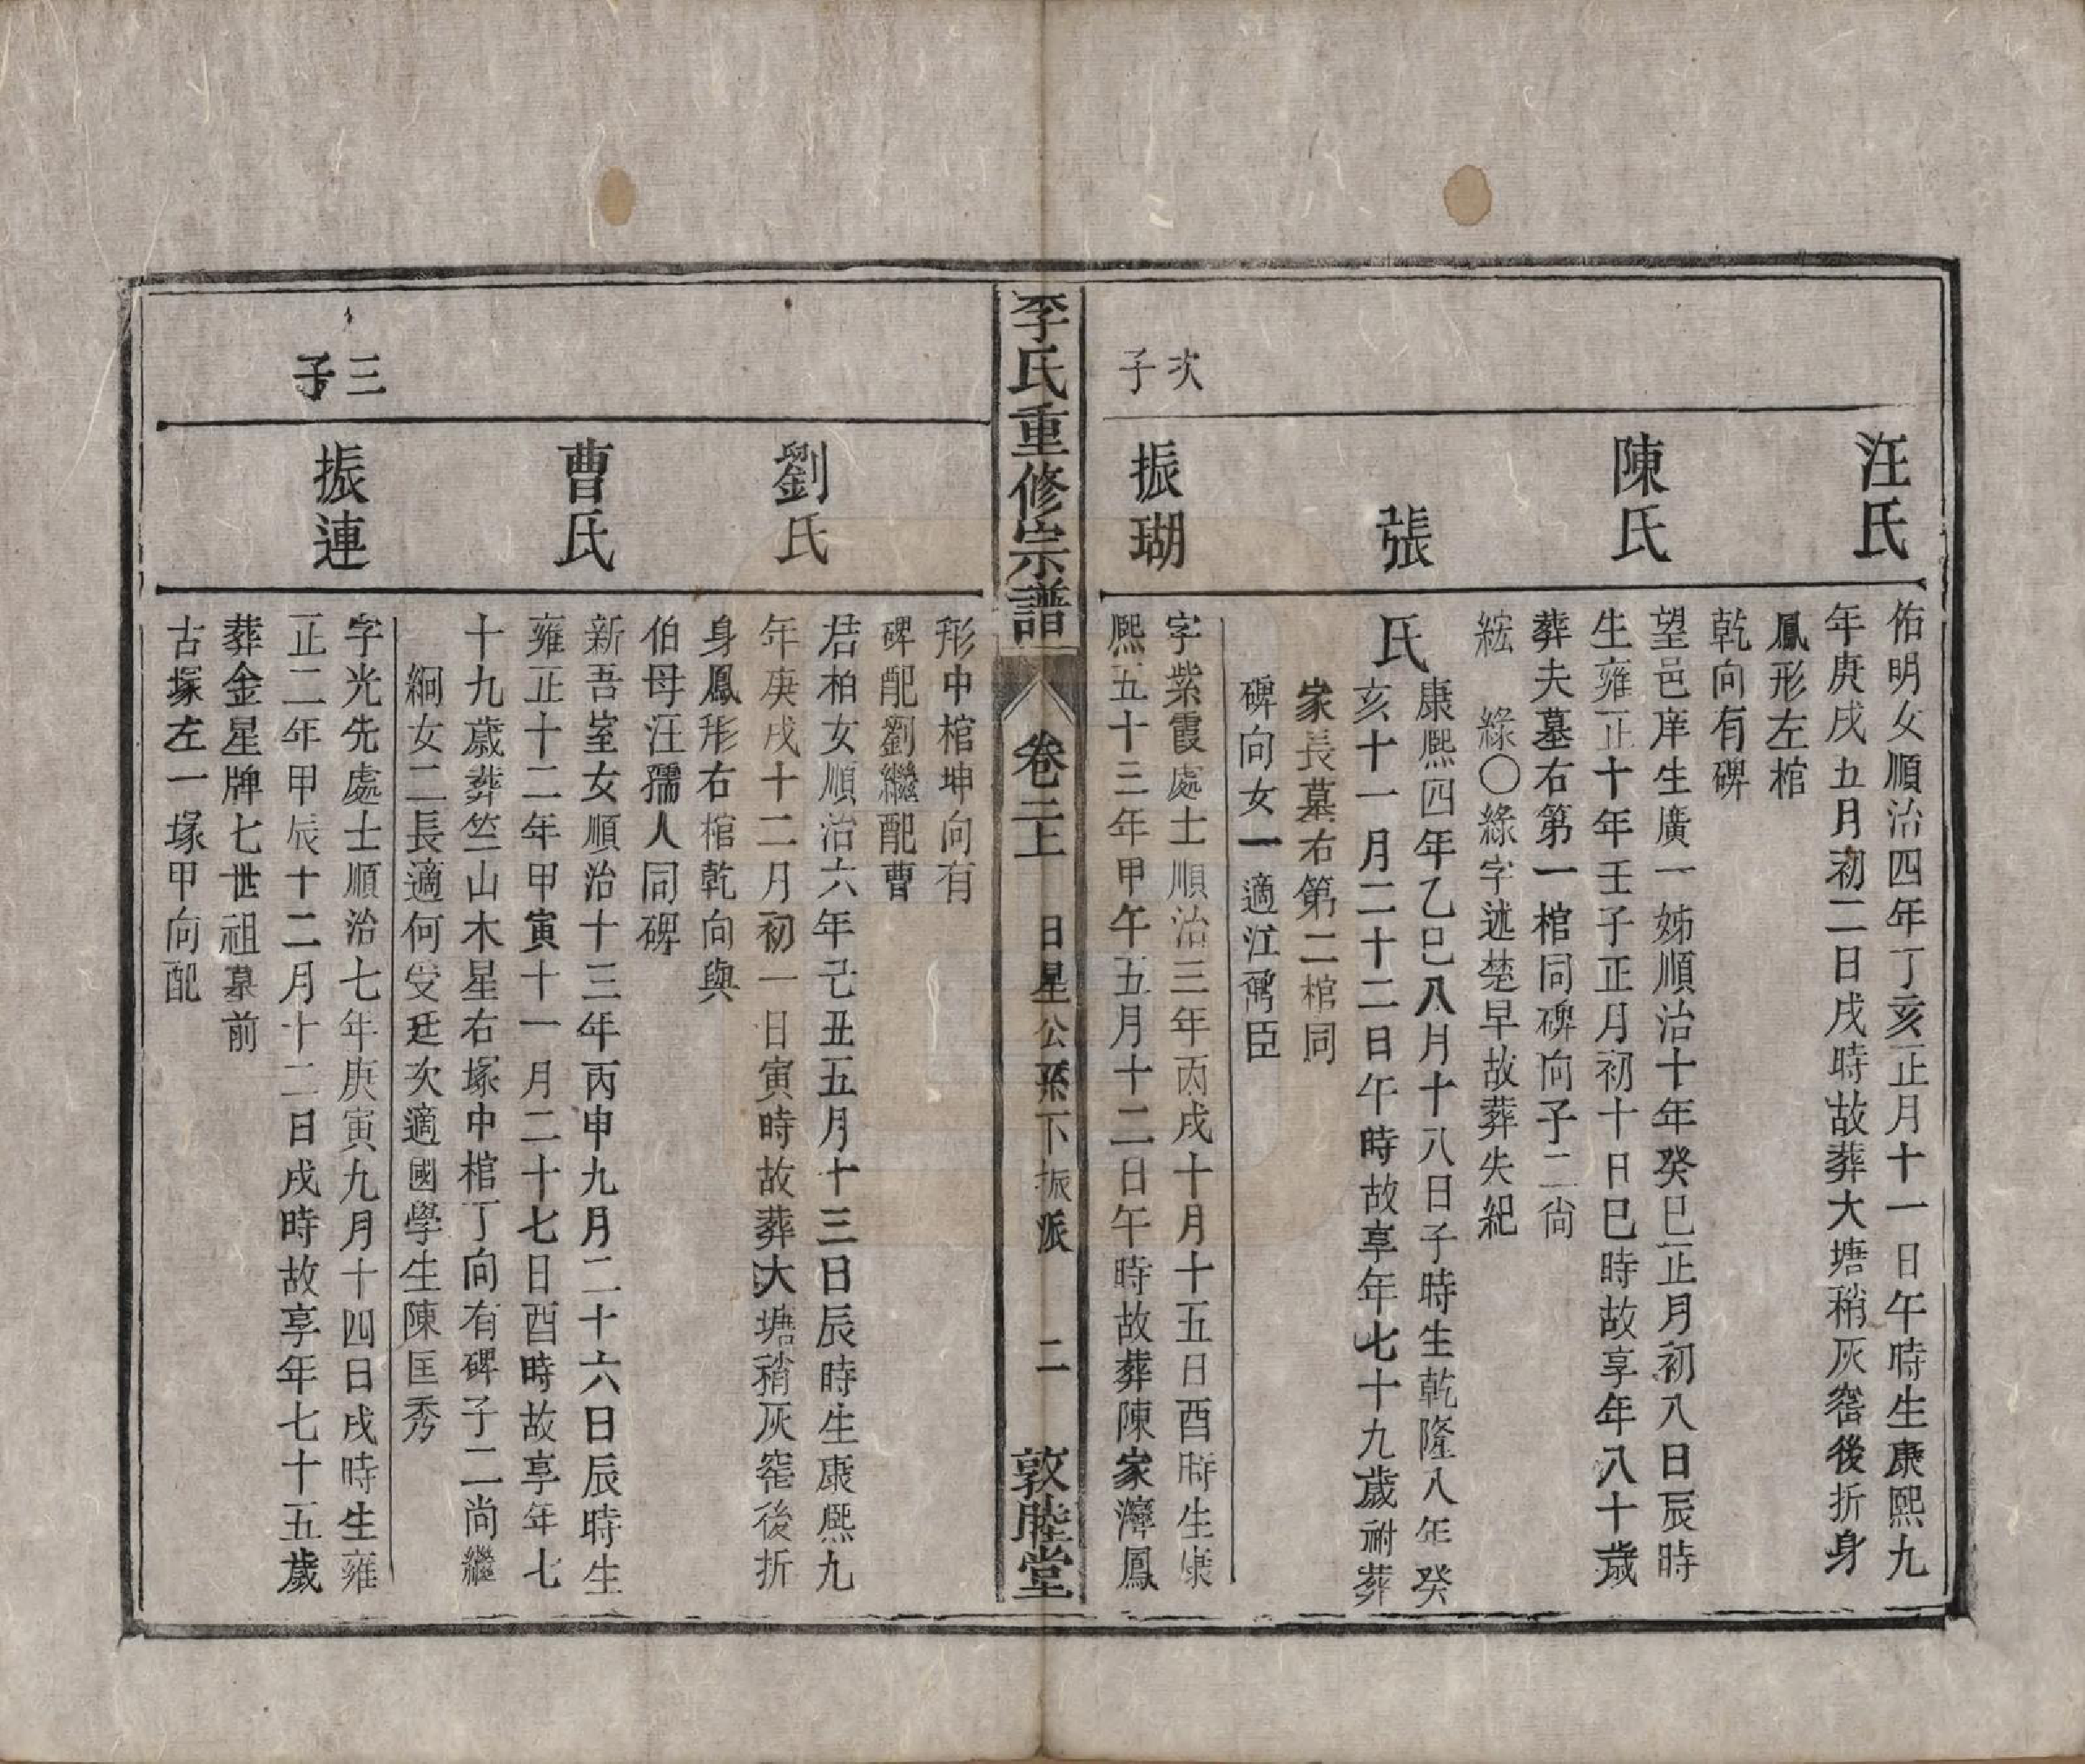 汪氏
佑明女順治四年丁亥正月十一日午時生康熙九
年庚戌五月初二日戌時故葬大塘稍灰窰後折身
鳳形左棺
乾向有碑
陳氏
望邑庠生廣一姊順治十年癸巳正月初八日辰時
生雍正十年壬子正月初十日巳時故享年八十歲
葬夫墓右第一棺同碑向子二尙
綋 綠〇綠字述楚早故葬失紀
張氏
康熙四年乙巳八月十八日子時生乾隆八年癸
亥十一月二十二日午時故享年七十九歲祔葬
家長墓右第二棺同
碑向女一適江爵臣
次子
振瑚
字紫霞處士順治三年丙戌十月十五日酉時生康
熙五十三年甲午五月十二日午時故葬陳家灣鳳
李氏重修宗譜 卷二上 日星公孫下振派 二 敦睦堂
形中棺坤向有
碑配劉繼配曹
劉氏
若柏女順治六年己丑五月十三日辰時生康熙九
年庚戌十二月初一日寅時故葬大塘稍灰窰後折
身鳳形右棺乾向與
伯母汪孺人同碑
曹氏
新吾室女順治十三年丙申九月二十六日辰時生
雍正十二年甲寅十一月二十七日酉時故享年七
十九歲葬竺山木星右塚中棺丁向有碑子二尚繼
綱女二長適何受廷次適國學生陳匡秀
三子
振連
字光先處士順治七年庚寅九月十四日戌時生雍
正二年甲辰十二月十二日戌時故享年七十五歲
葬金星牌七世祖墓前
古塚左一塚甲向配